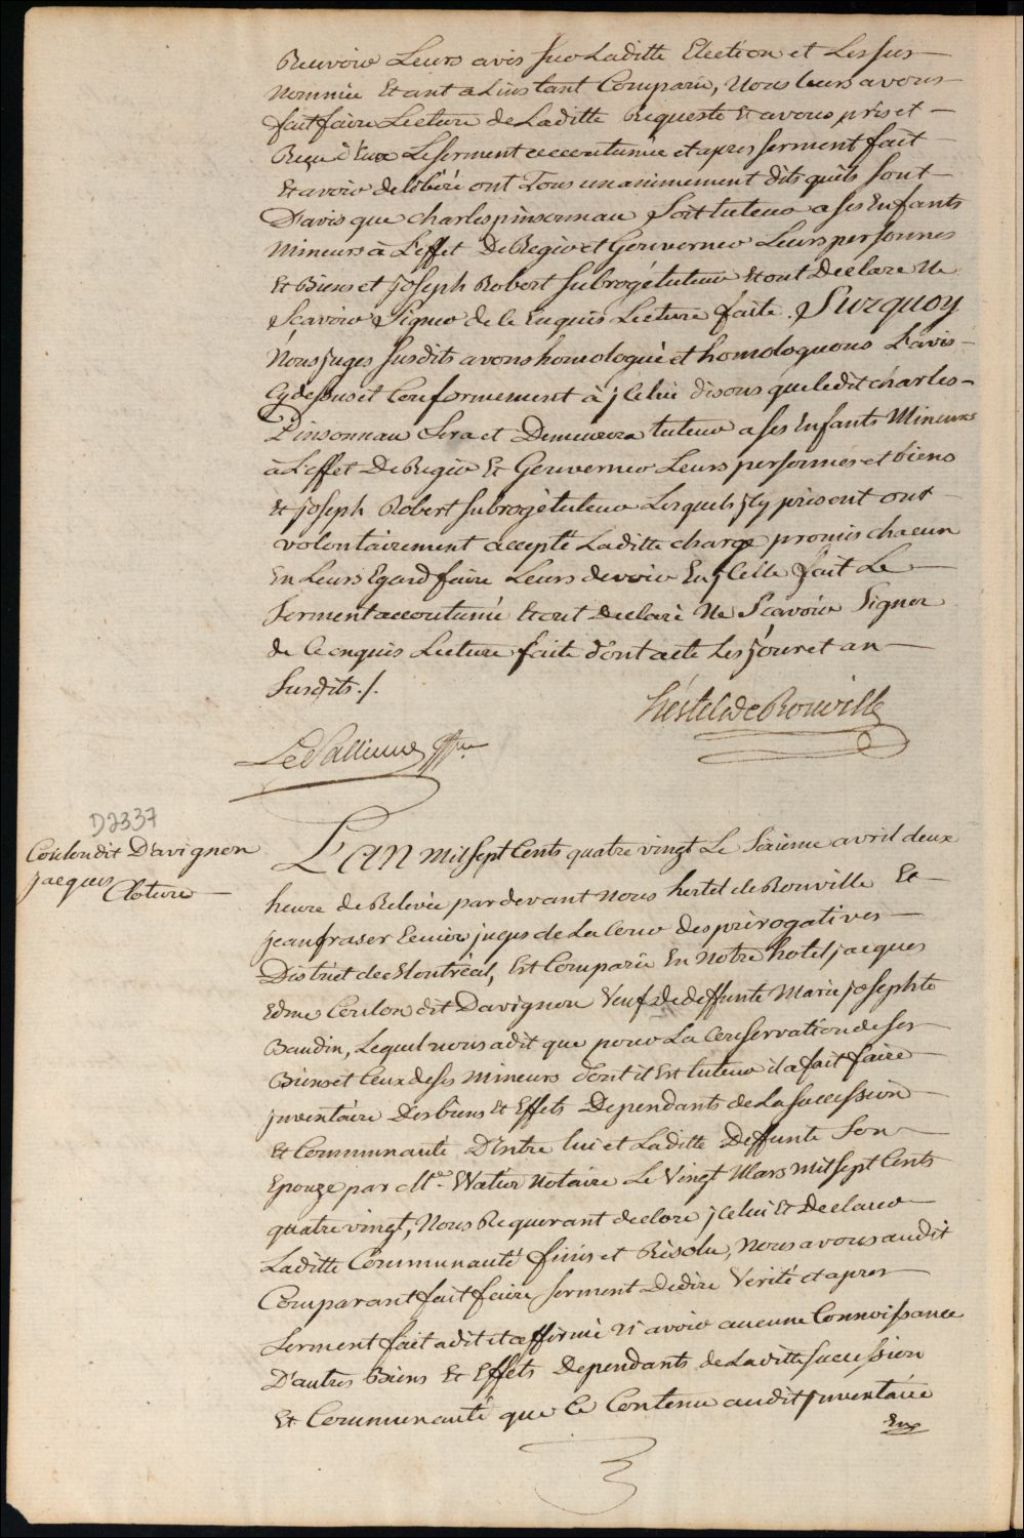 Recevoir Leurs avis sur Laditte Election et Les sus
nommée Etant a Linstant Comparu, Nous leurs avons
fait faire Lecture de Laditte Requeste Et avons pris et
Reçu d'Eux Le serment accoutumée et apres serment fait
Et avoir delibéré ont Tous unanimement dits quils sont
D'avis que charles pinsonnau soit tuteur a ses Enfants
Mineurs à L'effet De Regir et Gouverner Leurs personnes
Et Biens et joseph Robert subrogé tuteur Et ont Declare Ne
Scavoir Signer de ce Enquis Lecture faite. Surquoy
Nous juges susdits avons homologué et homologuons L'avis
Cy dessus et Conformement à jCelui disons que ledit charles
Pinsonnau Sera et Demeurera tuteur a ses Enfants Mineurs
à L'effet De Regir Et Gouverner Leurs personnes et biens
Et joseph Robert subrogé tuteur Lesquels jCy présent ont
volontairement accepté Laditte charge promis chacun
En Leurs Egard faire Leurs devoir En jCelle fait Le
Serment accoutumé Et ont declaré Ne Scavoir Signer
de Ce enquis Lecture faite dont acte Les jour et an
Susdits ./.
hertel de Rouville
Le Pallieur Gffier
D2337
Coulon dit D'avignon
jacques
Cloture
L'an mil sept Cents quatre vingt Le Sixieme avril deux
heure de Relevée pardevant nous hertel de Rouville Et
jean fraser Ecuier juges de La Cour des prérogatives
District de Montréal, Est Comparu En notre hotel jacques
Edme Coulon dit Davignon Veuf de deffunte Marie josephte
Baudin, Lequel nous a dit que pour La Conservation de ses
Biens et Ceux de ses mineurs dont il Est tuteur il a fait faire
jnventaire Des biens Et Effets Dependants de La succession
Et Communauté D'Entre lui et Laditte Deffunte Son
Epouze par Me. Watier Notaire Le Vingt Mars mil sept Cents
quatre vingt, Nous Requerant de clore jCelui Et Declarer
Laditte Communauté finis et Résolu, Nous avons audit
Comparant fait faire serment De dire Verité et apres
Serment fait a dit et affirmé N'avoir aucune Connoissance
D'autres Biens Et Effets dependants de Laditte succession
Et Communauté que Ce Contenu audit jnventaire
En